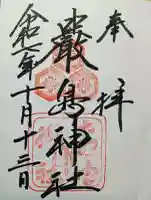 奉拝
厳島神社
令和二年十月十三日